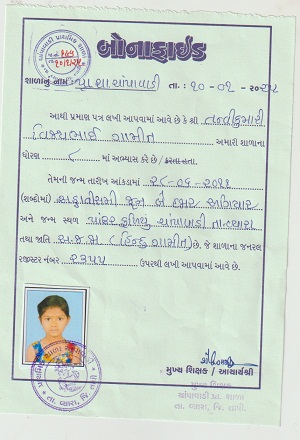 બોનાફાઈડ
શાળાનું નામ : પ્રા શા ચાંપાવાડી તા. : ૧૦-૦૧-૨૦
આથી પ્રમાણ પત્ર લખી આપવામાં આવે છે કે શ્રી તન્વીકુમારી
વિજયભાઈ ગામીત અમારી શાળાના
ધોરણ ૮ માં અભ્યાસ કરે છે /
તેમની જન્મ તારીખ આંકડામાં ૨૮-૦૬-૨૦૧૧
(શબ્દોમાં) અઠ્ઠાવીસમી જૂન બે હજાર અગિયાર
અને જન્મ સ્થળ ફળિયુ ચાંપાવાડી તા-વ્યારા
તથા જાતિ અ.જ.જા (હિન્દુ ગામીત) છે. જે શાળાના જનરલ
રજીસ્ટર નંબર ૨૩૫૫ ઉપરથી લખી આપવામાં આવે છે.
મુખ્ય શિક્ષક / આચાર્યશ્રી
મુખ્ય શિક્ષક
ચાંપાવાડી પ્રા. શાળા
તા. વ્યારા, જિ. તાપી.